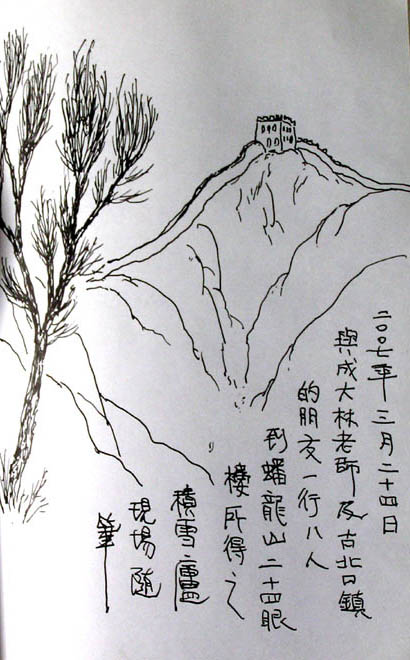 二〇〇七年三月二十四日
與成大林老師及古北口鎮
的朋友一行八人
到蟠龍山二十四眼
樓所得之
積雪廬
現場隨
筆